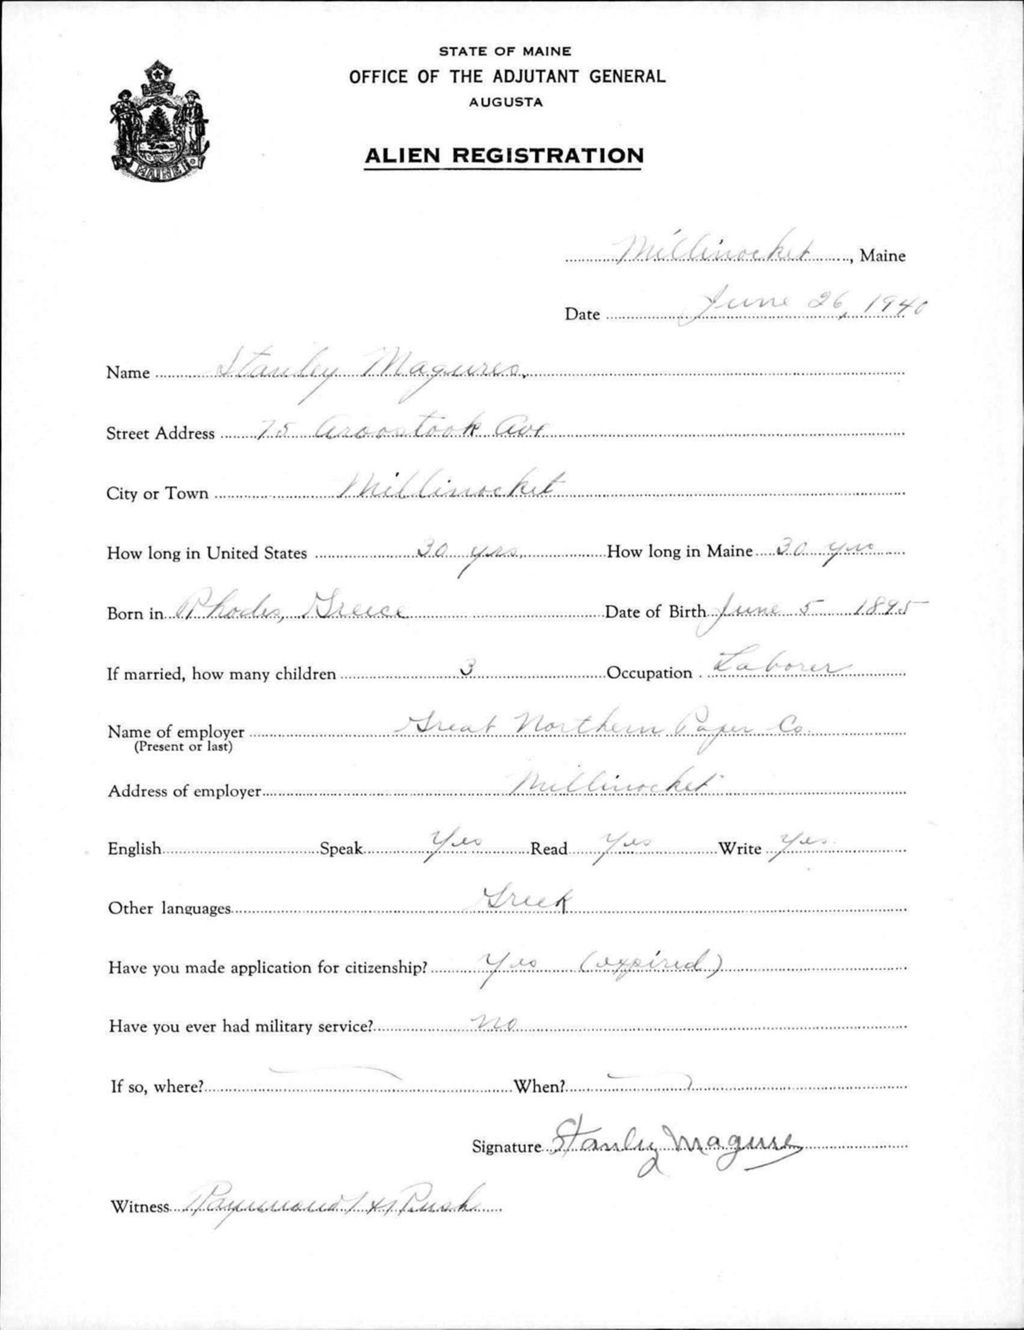 STATE OF MAINE
OFFICE OF THE ADJUTANT GENERAL
AUGUSTA
ALIEN REGISTRATION
MAINE
Millinocket, Maine
Date June 26, 1940
Name Stanley Magures.
Street Address 75 Aroostook Ave
City or Town Millinocket
How long in United States 30 yrs. How long in Maine 30 yrs
Born in Rhodes, Greece Date of Birth June 5 1895
If married, how many children 3 Occupation Laborer
Name of employer Great Northern Paper Co.
(Present or last)
Address of employer Millinocket
English Speak Yes Read Yes Write Yes
Other languages Greek
Have you made application for citizenship? Yes (expired)
Have you ever had military service? No
If so, where? When?
Signature Stanley
Witness Raymond H Rush